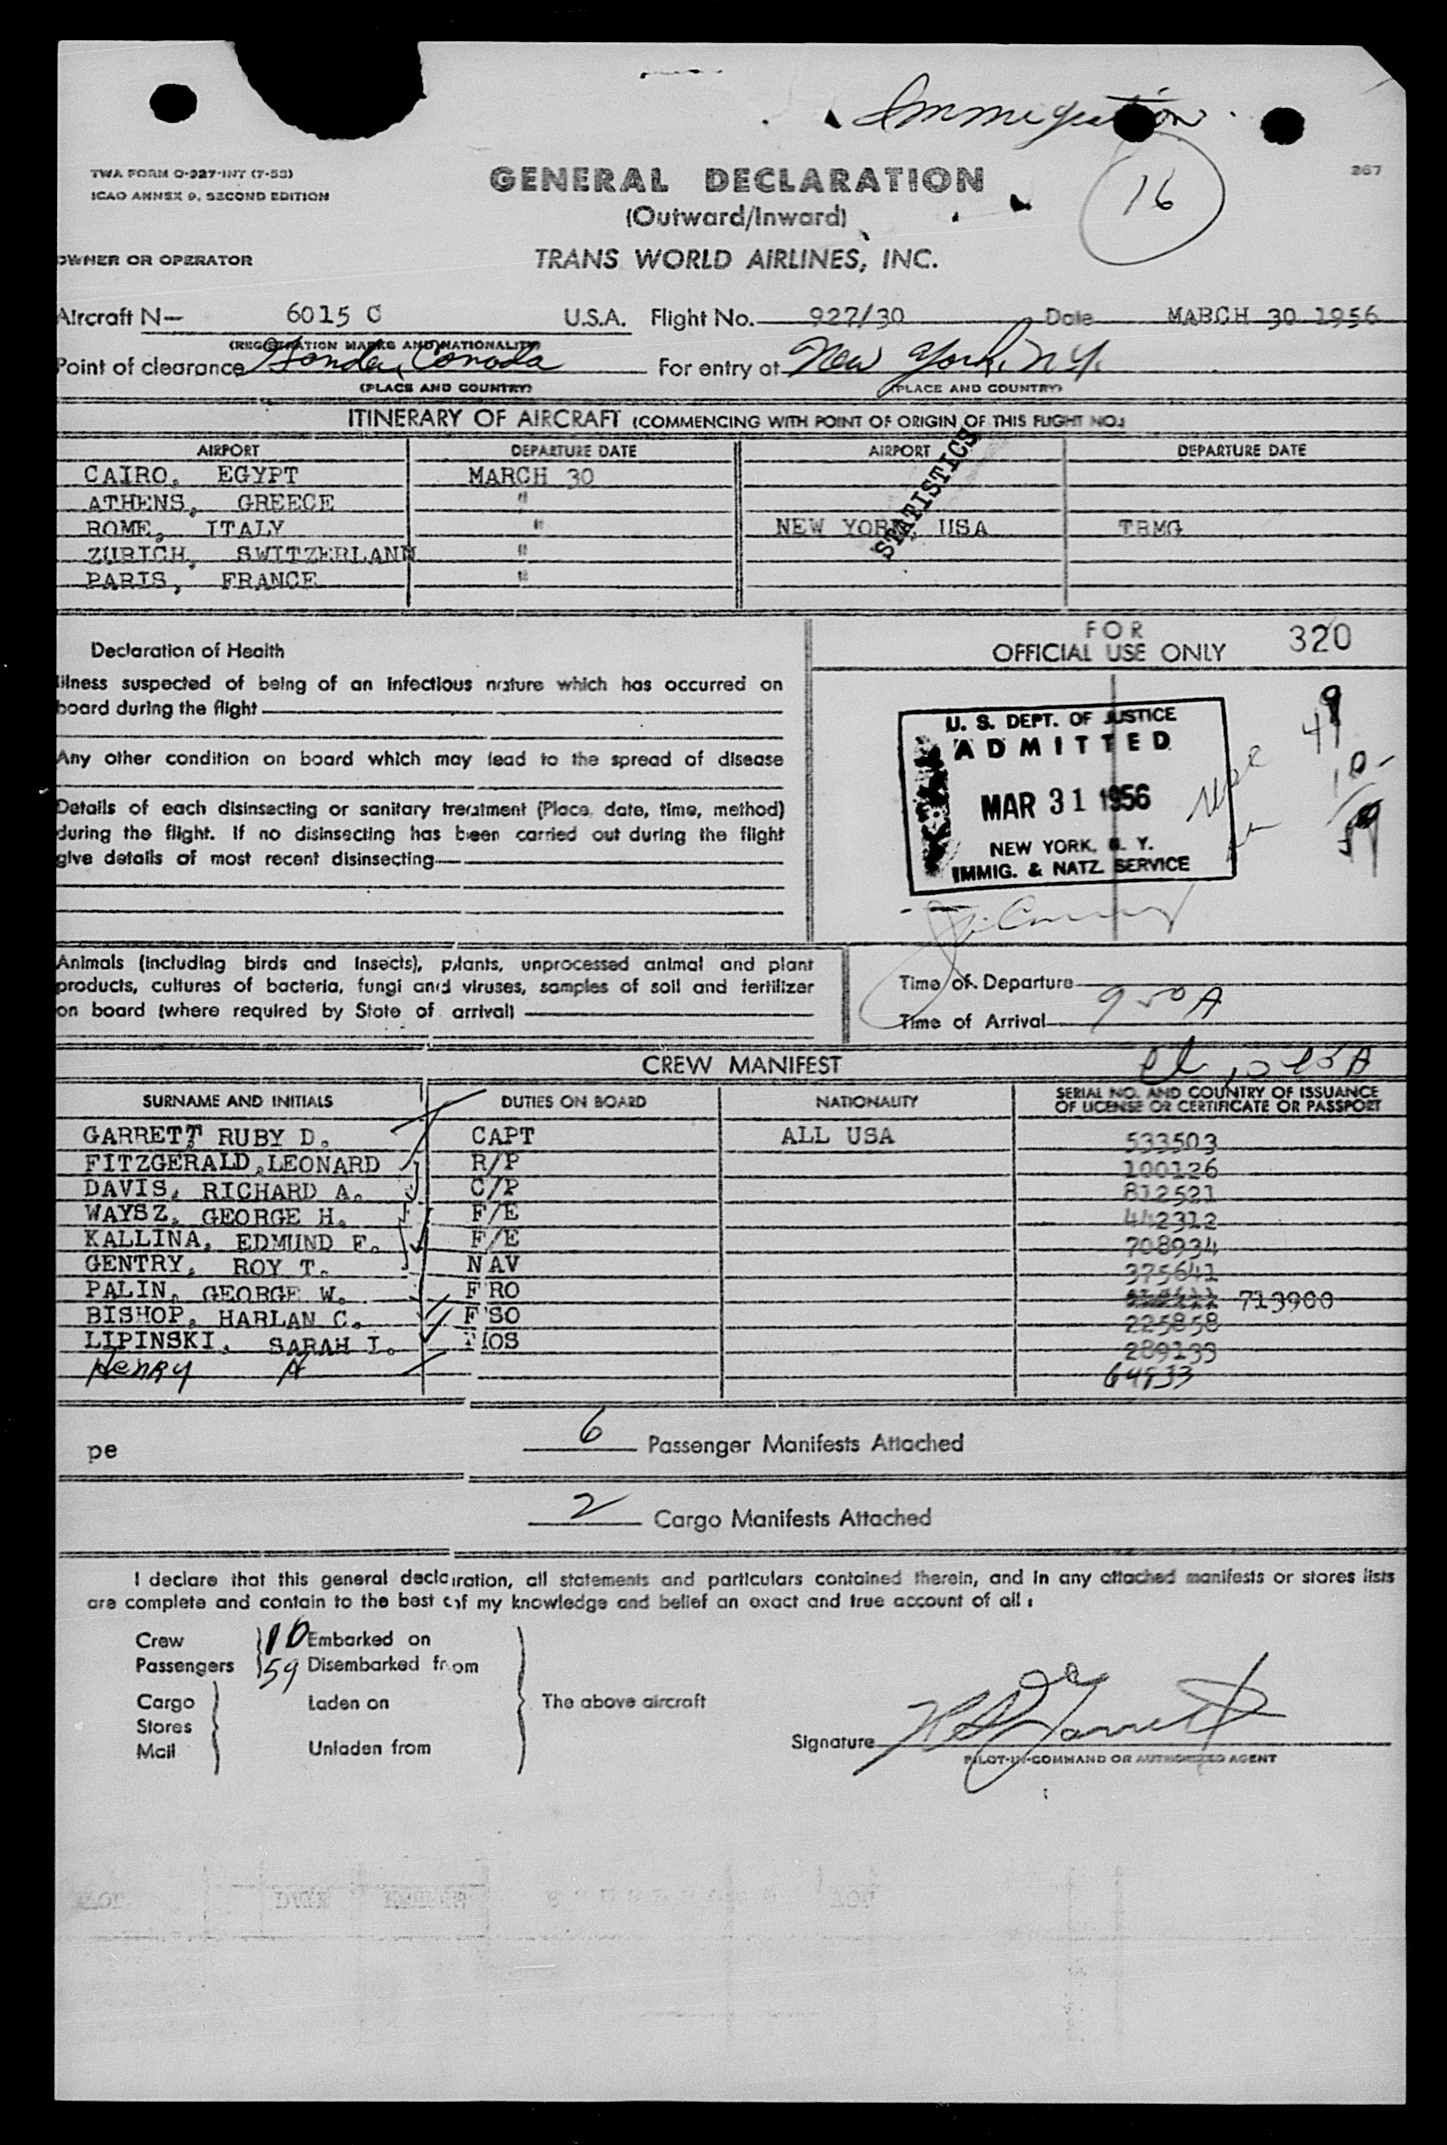 Immigration
16
TWA FORM O-927-INT (7-53)
ICAO ANNEX 9, SECOND EDITION
267
GENERAL DECLARATION
(Outward/Inward)
OWNER OR OPERATOR
TRANS WORLD AIRLINES, INC.
Aircraft N— 6015 C U.S.A. Flight No. 927/30 Date MARCH 30 1956
(REGISTRATION MARKS AND NATIONALITY)
Point of clearance Gander, Canada For entry at New York, N.Y.
(PLACE AND COUNTRY) (PLACE AND COUNTRY)
ITINERARY OF AIRCRAFT (COMMENCING WITH POINT OF ORIGIN OF THIS FLIGHT NO.)
AIRPORT DEPARTURE DATE AIRPORT DEPARTURE DATE
CAIRO, EGYPT MARCH 30
ATHENS, GREECE "
ROME, ITALY " NEW YORK, USA TRMG
ZURICH, SWITZERLAND "
PARIS, FRANCE "
STATISTICS
FOR
OFFICIAL USE ONLY 320
Declaration of Health
Illness suspected of being of an infectious nature which has occurred on
board during the flight
Any other condition on board which may lead to the spread of disease
Details of each disinsecting or sanitary treatment (Place, date, time, method)
during the flight. If no disinsecting has been carried out during the flight
give details of most recent disinsecting
U. S. DEPT. OF JUSTICE
ADMITTED
MAR 31 1956
NEW YORK, N. Y.
IMMIG. & NATZ. SERVICE
49
10-
59
Animals (including birds and insects), plants, unprocessed animal and plant
products, cultures of bacteria, fungi and viruses, samples of soil and fertilizer
on board (where required by State of arrival)
Time of Departure
Time of Arrival 950A
CREW MANIFEST
SURNAME AND INITIALS DUTIES ON BOARD NATIONALITY SERIAL NO. AND COUNTRY OF ISSUANCE
OF LICENSE OR CERTIFICATE OR PASSPORT
GARRETT RUBY D. CAPT ALL USA 533503
FITZGERALD, LEONARD R/P 100126
DAVIS, RICHARD A. C/P 812521
WAYSZ, GEORGE H. F/E 442312
KALLINA, EDMUND F. F/E 708934
GENTRY, ROY T. NAV 375641
PALIN, GEORGE W. FRO 713900
BISHOP, HARLAN C. FSO 225858
LIPINSKI, SARAH I. HOS 289133
Henry H 64933
pe
6 Passenger Manifests Attached
2 Cargo Manifests Attached
I declare that this general declaration, all statements and particulars contained therein, and in any attached manifests or stores lists
are complete and contain to the best of my knowledge and belief an exact and true account of all:
Crew 10 Embarked on
Passengers 59 Disembarked from
Cargo Laden on The above aircraft
Stores
Mail Unladen from
Signature R D Garrett
PILOT-IN-COMMAND OR AUTHORIZED AGENT